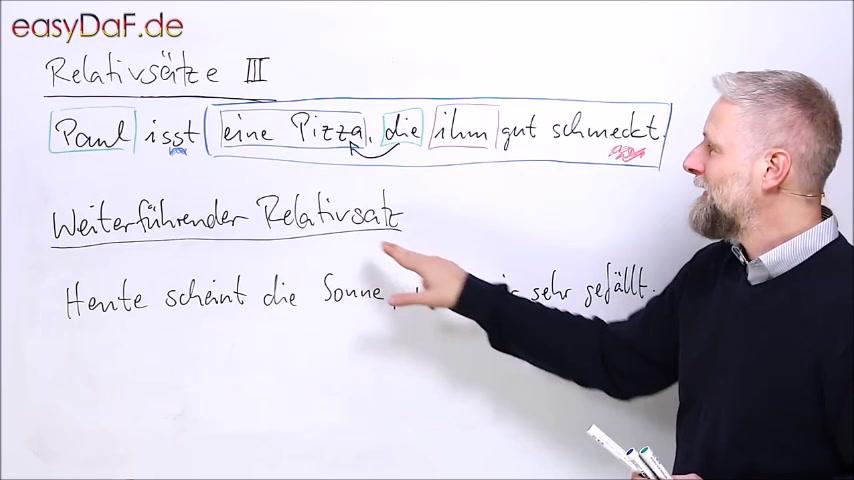 easyDaF.de
Relativsätze III
Paul isst eine Pizza, die ihm gut schmeckt.
Weiterführender Relativsatz
Heute scheint die Sonne, sehr gefällt.